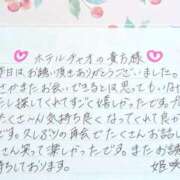 ホテルチャオの貴方様
昨日はお誘い頂きありがとうございました。
さかまたお会いできるとは思っていなか
たし探してくれてすごく嬉しかったです。
たくさん気持ち良くなってくれて良かった
です。久しぶりの再会でたくさんお話し
さん笑って楽しかったです。またお誘
待ちしております。 姫咲